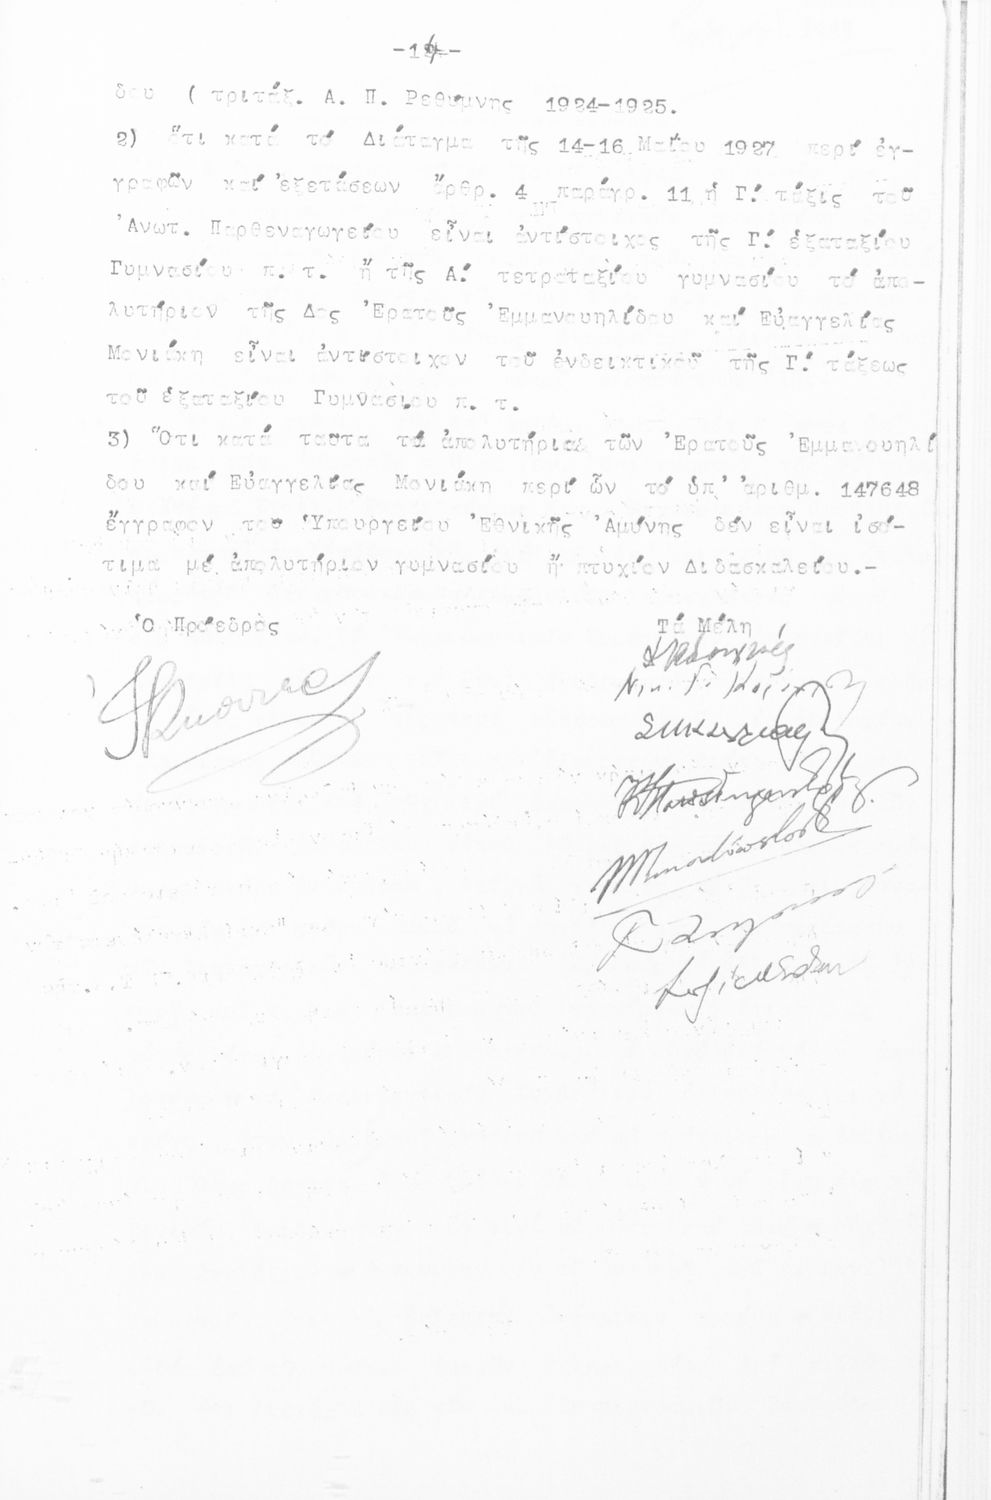 δου ( τριτάξ. Α. Π. Ρεθύμνης 1924-1925.
2) ὅτι κατά τό Διάταγμα τῆς 14-16 Μαΐου 1927 περί ἐγ-
γραφῶν καί ἐξετάσεων ἄρθρ. 4 παράγρ. 11 ἡ Γ΄ τάξις τοῦ
Ἀνωτ. Παρθεναγωγείου εἶναι ἀντίστοιχος τῆς Γ΄ ἑξαταξίου
Γυμνασίου π. τ. ἤ τῆς Α΄ τετραταξίου γυμνασίου τό ἀπο-
λυτήριον τῆς Δος Ἐρατοῦς Ἐμμανουηλίδου καί Εὐαγγελίας
Μονιάκη εἶναι ἀντίστοιχον τοῦ ἐνδεικτικοῦ τῆς Γ΄ τάξεως
τοῦ ἑξαταξίου Γυμνασίου π. τ.
3) Ὅτι κατά ταῦτα τά ἀπολυτήρια τῶν Ἐρατοῦς Ἐμμανουηλί
δου καί Εὐαγγελίας Μονιάκη περί ὧν τό ὑπ' ἀριθμ. 147648
ἔγγραφον τοῦ Ὑπουργείου Ἐθνικῆς Ἀμύνης δέν εἶναι ἰσό-
τιμα μέ ἀπολυτήριον γυμνασίου ἤ πτυχίον Διδασκαλείου.-
Ὁ Πρόεδρος Τά Μέλη